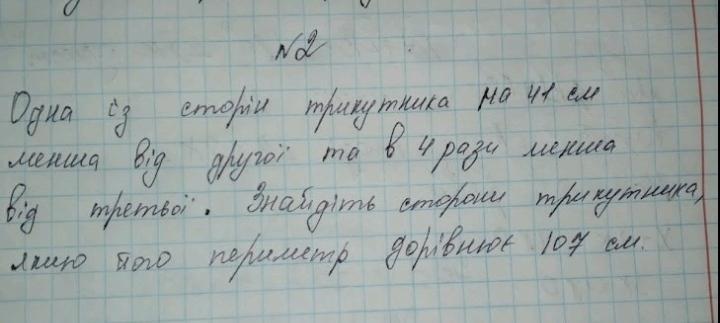 №2
Одна із сторін трикутника на 41 см
менша від другої та в 4 рази менша
від третьої. Знайдіть сторони трикутника,
якщо його периметр дорівнює 107 см.